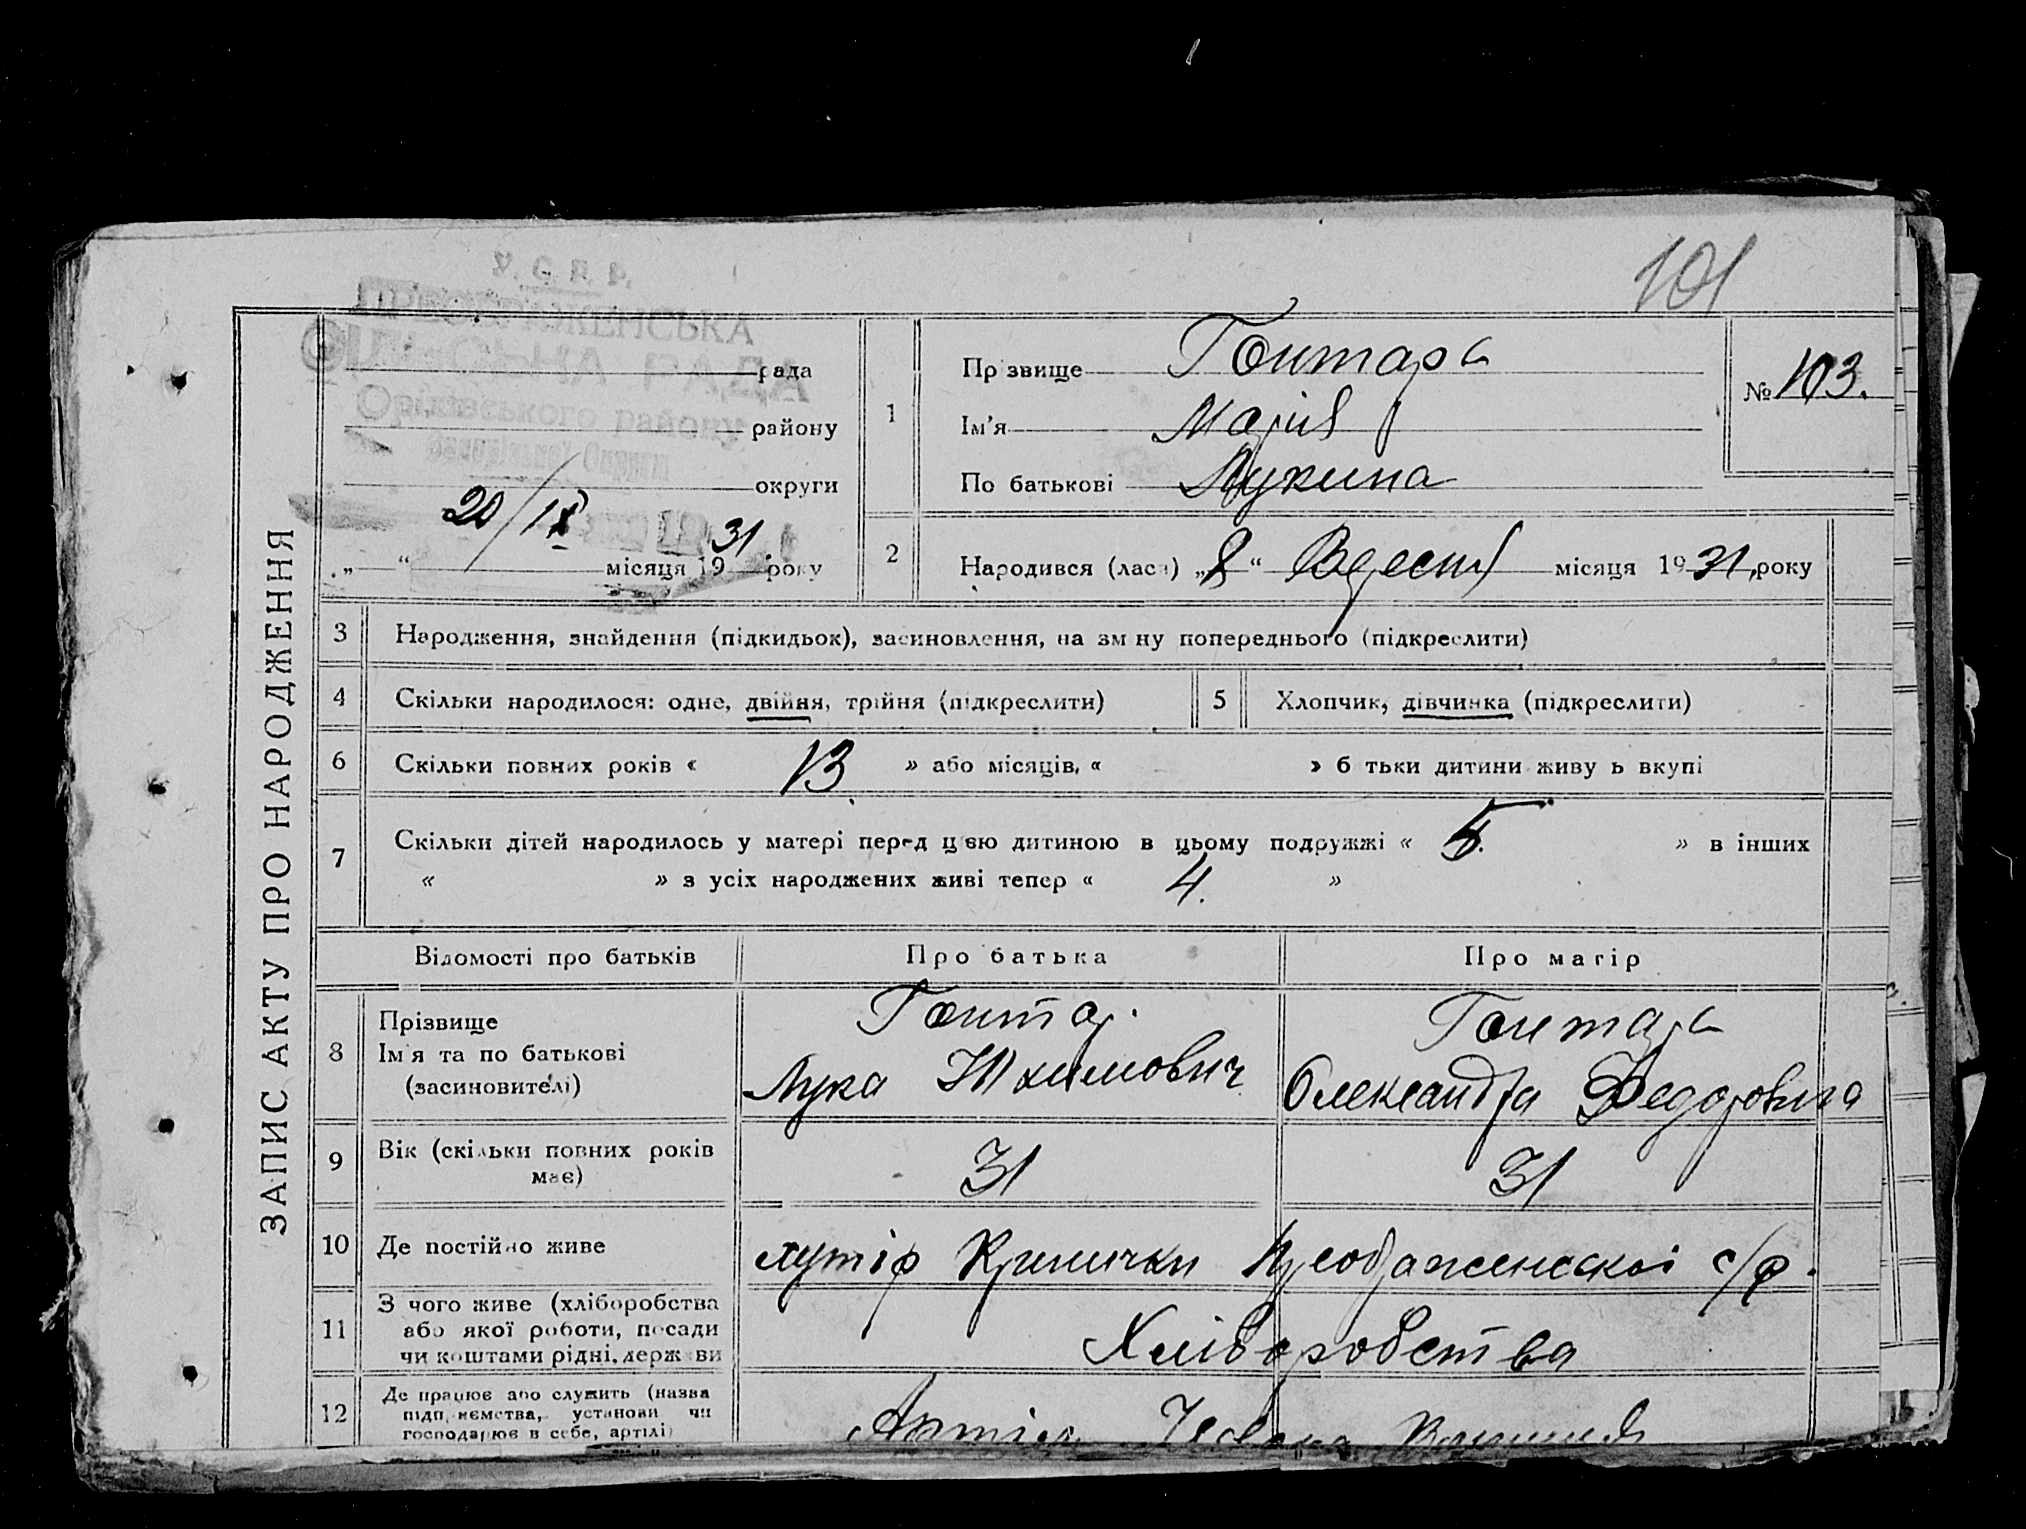 101
У.С.Р.Р.
ПРЕОБРАЖЕНСЬКА
СІЛЬСЬКА РАДА
Оріхівського району
рада
району
округи
20/IX
„ “ місяця 1931 року
ЗАПИС АКТУ ПРО НАРОДЖЕННЯ
1
Прізвище Гонтарь
Ім'я Марія
По батькові Лукина
№ 103.
2 Народився (лася) „8“ Вересня місяця 1931 року
3 Народження, знайдення (підкидьок), засиновлення, на зміну попереднього (підкреслити)
4 Скільки народилося: одне, двійня, трійня (підкреслити)
5 Хлопчик, дівчинка (підкреслити)
6 Скільки повних років « 13 » або місяців, « » батьки дитини живуть вкупі
7 Скільки дітей народилось у матері перед цією дитиною в цьому подружжі « 5. » в інших
« » з усіх народжених живі тепер « 4. »
Відомості про батьків Про батька Про матір
8 Прізвище
Ім'я та по батькові
(засиновителі)
Гонтар
Лука
Гонтарь
Олександра Федоровна
9 Вік (скільки повних років
має)
31 31
10 Де постійно живе хутір Кринички Преображенської с/р.
11 З чого живе (хліборобства
або якої роботи, посади
чи коштами рідні, держави
Хліборобства
12 Де працює або служить (назва
підприємства, установи чи
господарює в себе, артілі)
Артіль